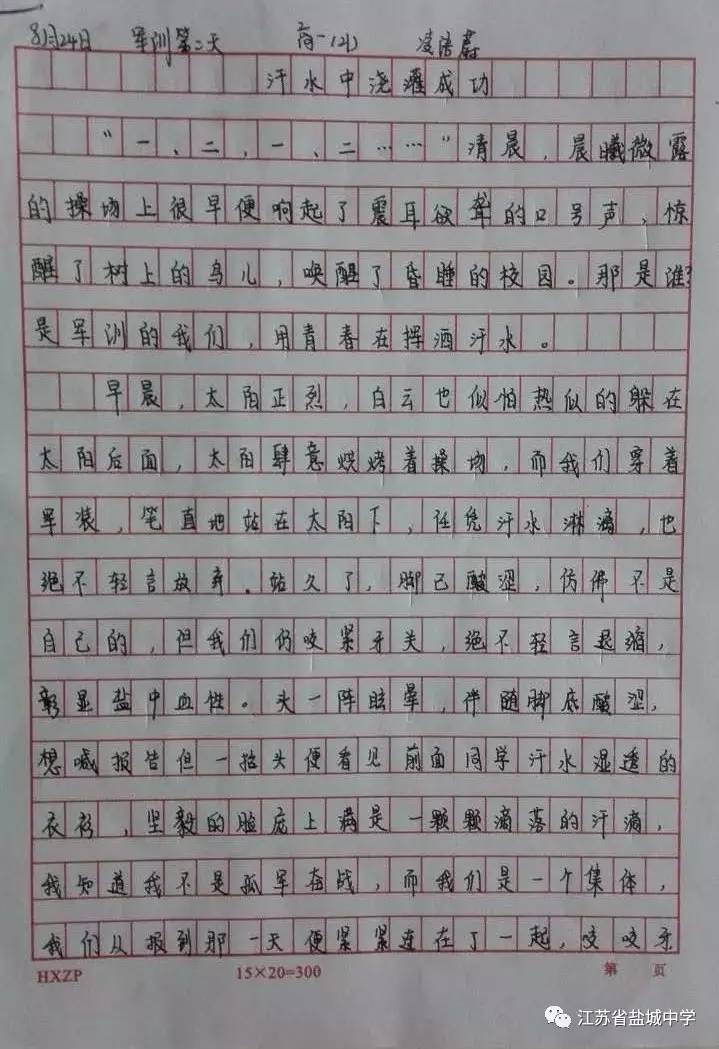 8月24日 军训第二天 高一(21) 凌语蔚
汗水中浇灌成功
“一、二,一、二……”清晨,晨曦微露
的操场上很早便响起了震耳欲聋的口号声,惊
醒了树上的鸟儿,唤醒了昏睡的校园。那是谁?
是军训的我们,用青春在挥洒汗水。
早晨,太阳正烈,白云也似怕热似的躲在
太阳后面,太阳肆意烘烤着操场,而我们穿着
军装,笔直地站在太阳下,任凭汗水淋漓,也
绝不轻言放弃。站久了,脚已酸涩,仿佛不是
自己的,但我们仍咬紧牙关,绝不轻言退缩,
彰显盐中血性。头一阵眩晕,伴随脚底酸涩,
想喊报告但一抬头便看见前面同学汗水湿透的
衣衫,坚毅的脸庞上满是一颗颗滴落的汗滴,
我知道我不是孤军奋战,而我们是一个集体,
我们从报到那一天便紧紧连在了一起,咬咬牙
HXZP 15×20=300 第 页
江苏省盐城中学